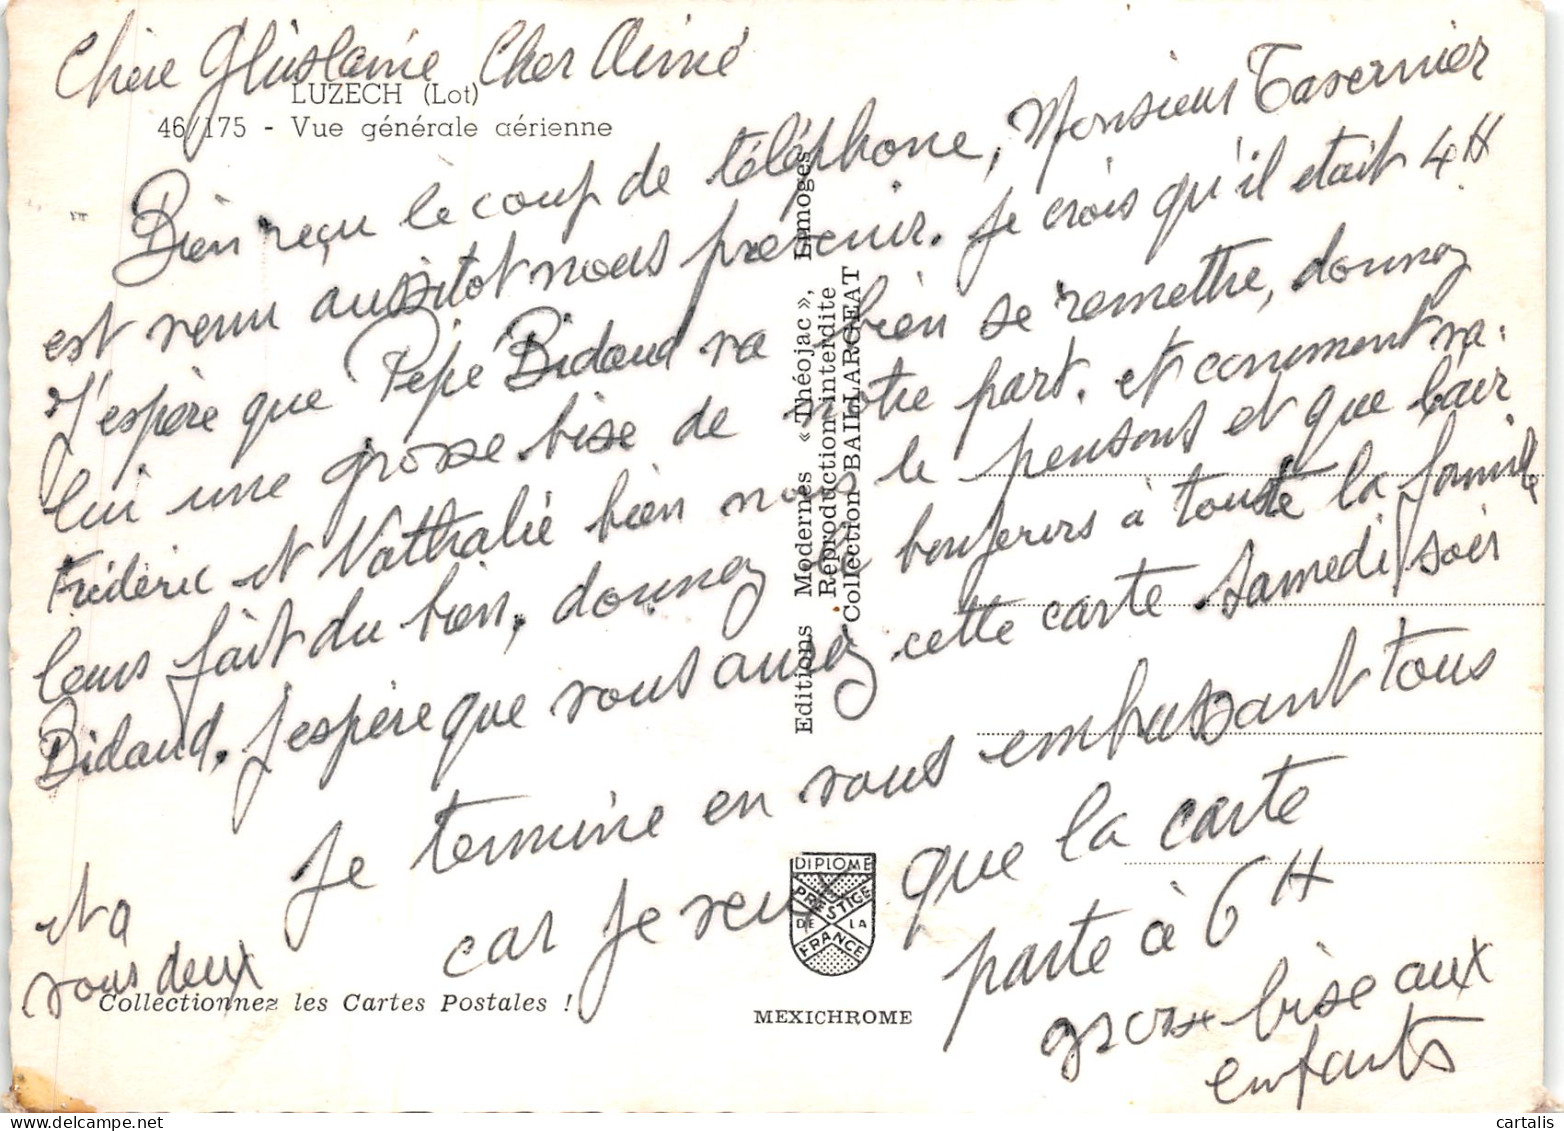 Chère Ghislaine Cher Aimé
LUZECH (Lot)
46/175 - Vue générale aérienne
Bien reçu le coup de téléphone, Monsieur Tavernier
est venu aussitot nous prévenir. Je crois qu'il etait 4H
J'espère que Pépé Bidaud va bien se remettre, donnez
lui une grosse bise de notre part. et comment va.
Frédéric et Nathalie bien nous le pensons et que l'air
leurs fait du bien, donnez le bonjours à toute la famille
Bidaud. J'espère que vous aurez cette carte Samedi soir
Je termine en vous embrassant tous
car je veux que la carte
parte à 6H
et a
vous deux
grosse bise aux
enfants
Editions Modernes « Théojac », Limoges
Reproduction interdite
Collection BAILLARGEAT
DIPLOME
PRESTIGE
DE LA
FRANCE
Collectionnez les Cartes Postales !
MEXICHROME
cartalis